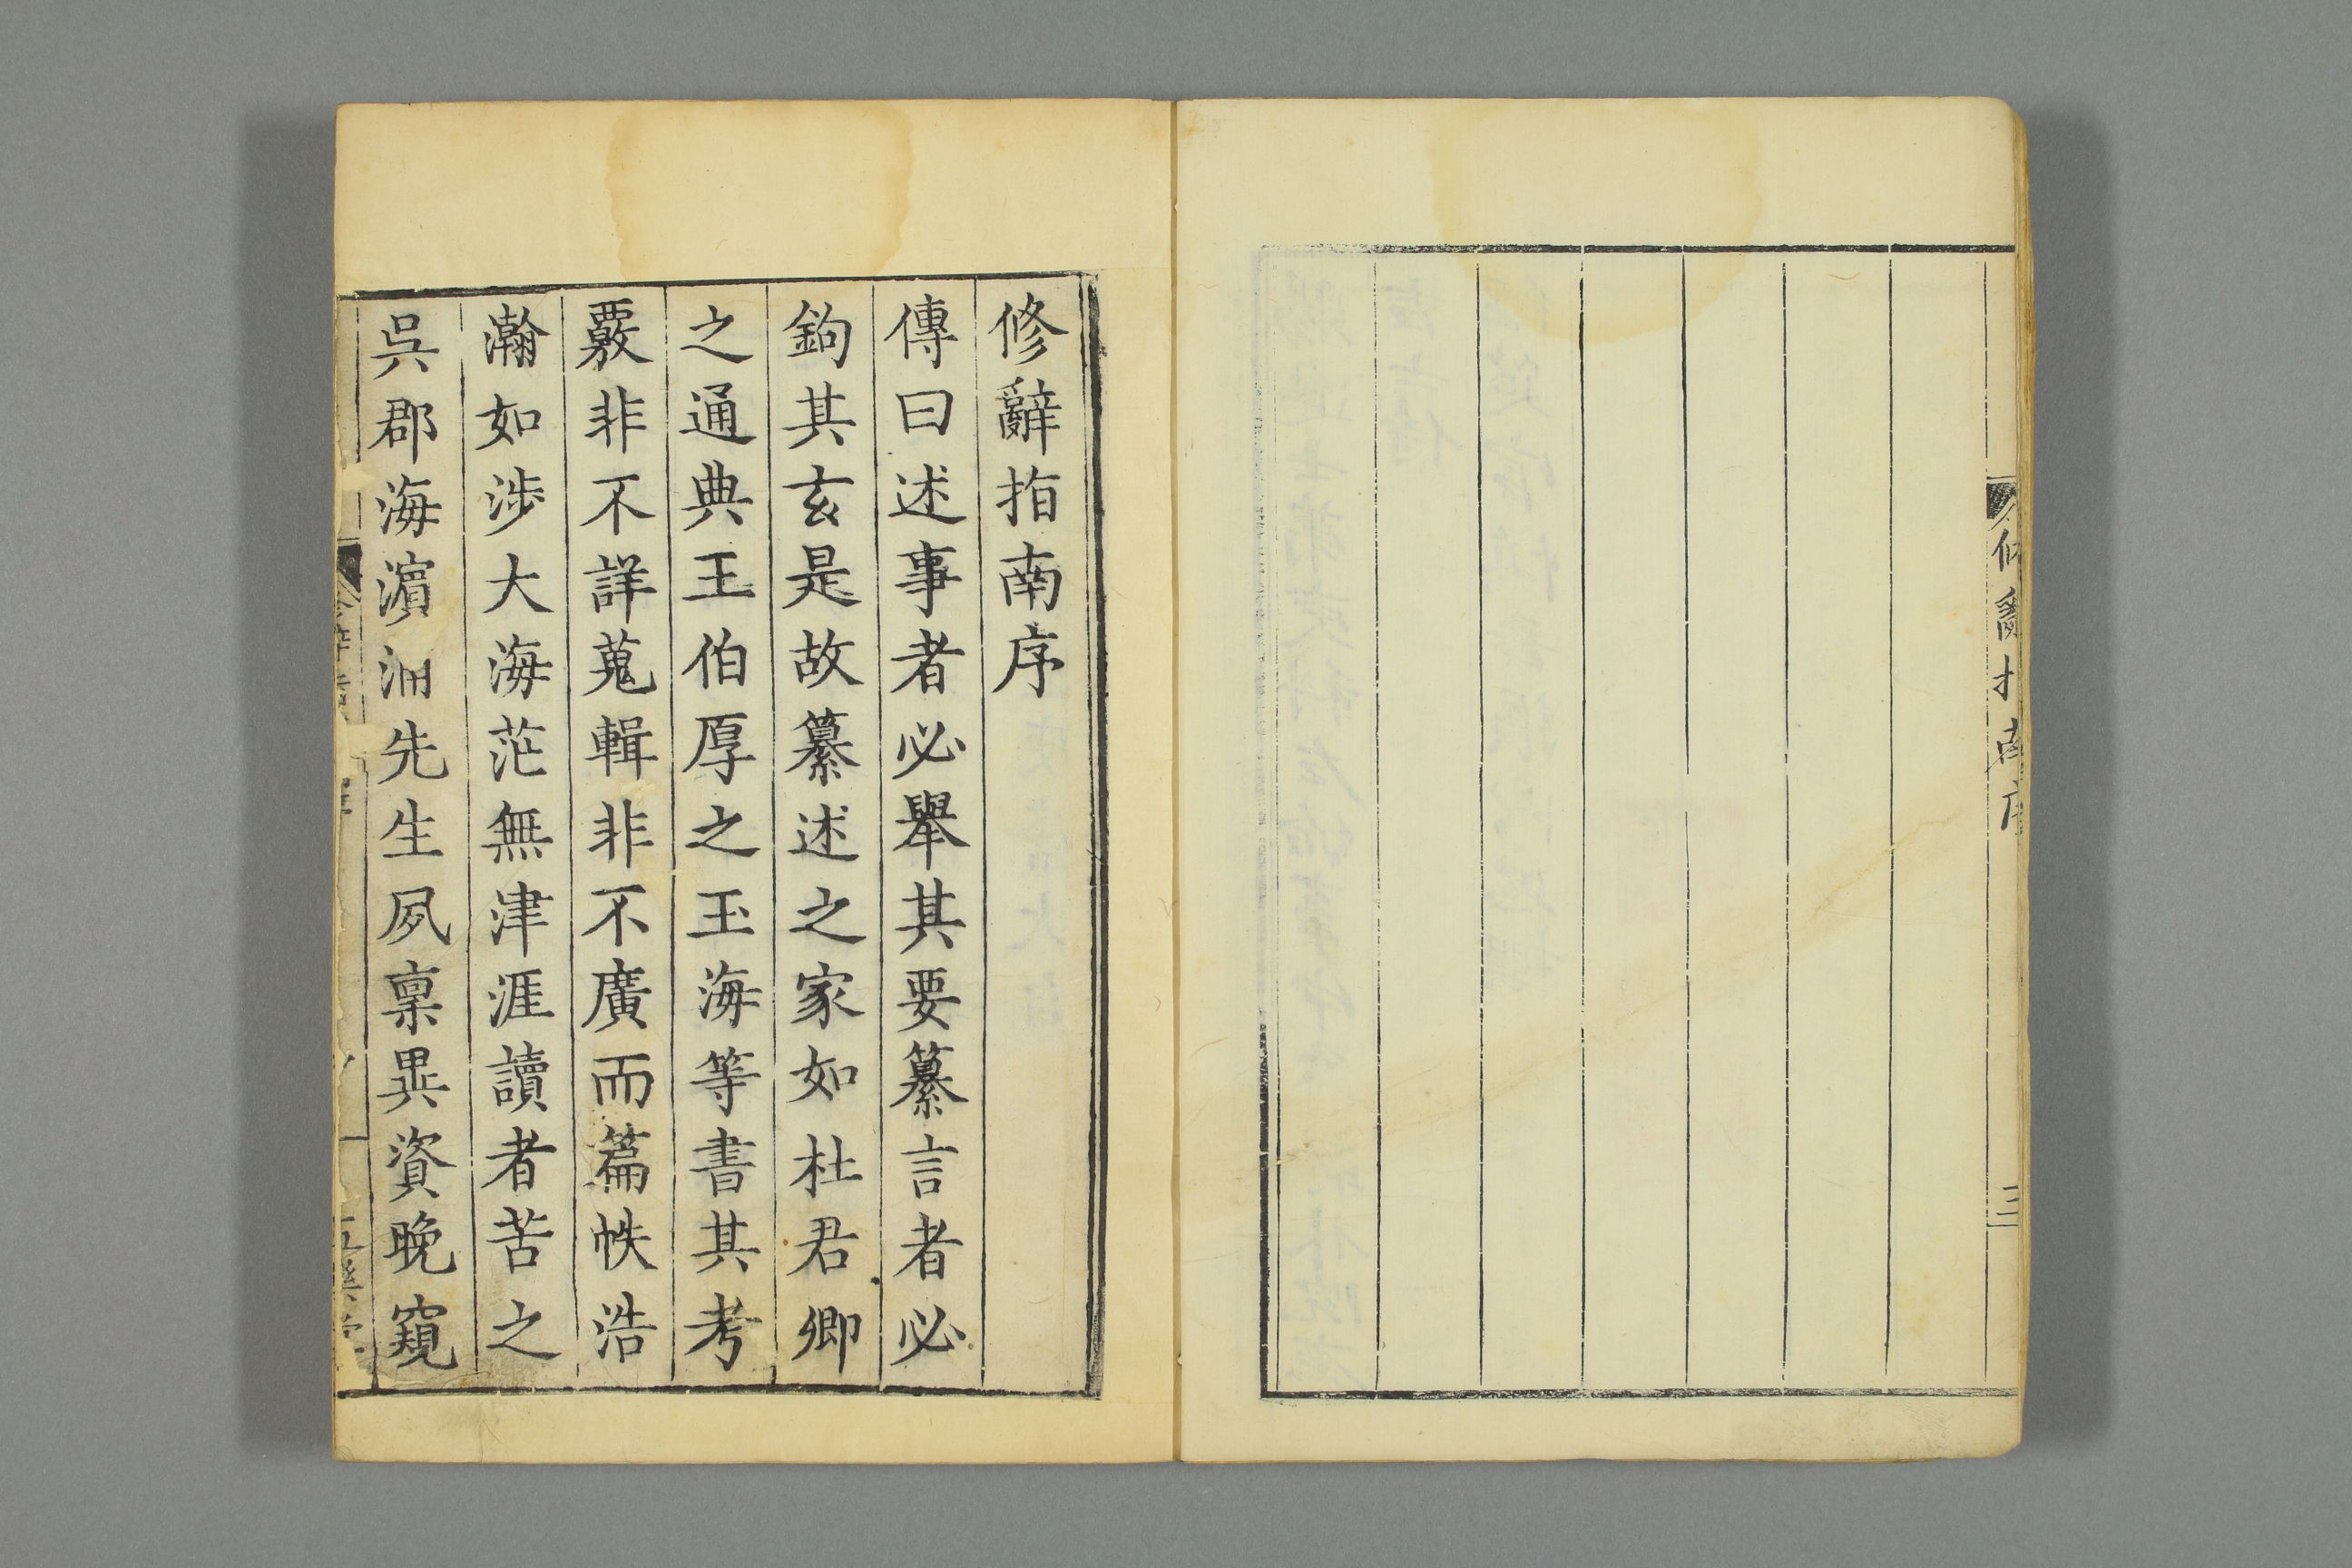 修辭指南序
三
修辭指南序
傳曰述事者必舉其要纂言者必
鉤其玄是故纂述之家如杜君卿
之通典王伯厚之玉海等書其考
覈非不詳蒐輯非不廣而篇帙浩
瀚如涉大海茫無津涯讀者苦之
吳郡海濵浦先生夙禀異資晚窺